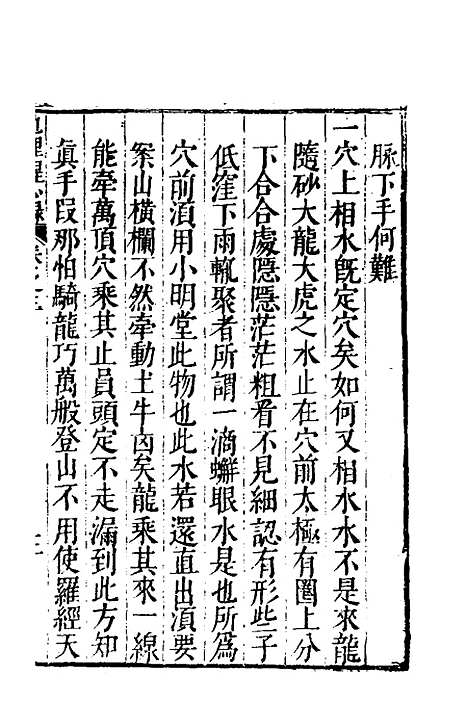 脉下手何難
一穴上相水既定穴矣如何又相水水不是來龍
隨砂大龍大虎之水止在穴前太極有圈上分
下合合處隱隱茫茫粗看不見細認有形些子
低窪下雨輒聚者所謂一滴蠏眼水是也所爲
穴前湏用小明堂此物也此水若還直出湏要
案山橫欄不然牽動土牛凶矣龍乘其來一線
能牽萬頂穴乘其止員頭定不走漏到此方知
眞手段那怕騎龍巧萬般登山不用使羅經天